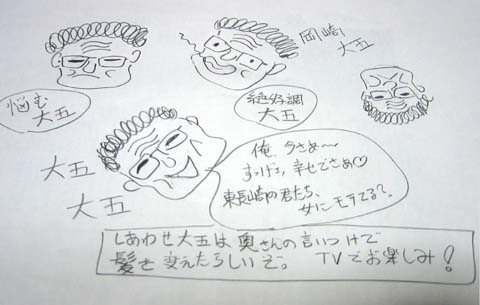 岡崎
大五
悩む
大五
絶好調
大五
大五
大五
俺、今さあ〜
すっげェ、幸せでさぁ♡
東長崎の君たち、
女にモテてる?。
しあわせ大五は奥さんの言いつけで
髪を変えたらしいぞ。 TVでお楽しみ!